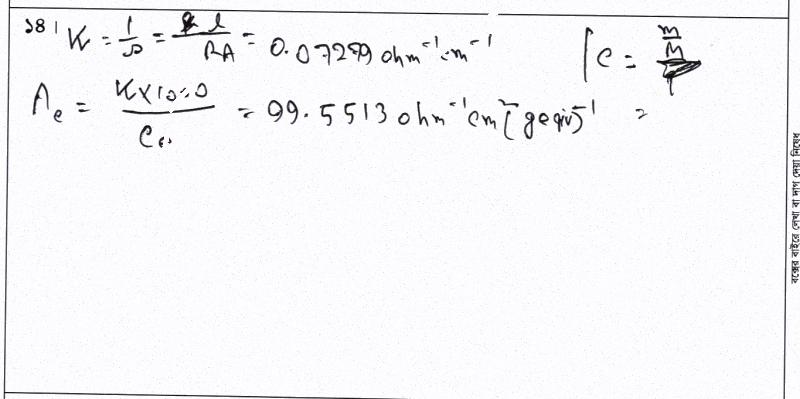 ১৪। K = 1/ρ = l/RA = 0.07299 ohm⁻¹cm⁻¹ [C = m/M
Λe = K×1000/Ce = 99.5513 ohm⁻¹cm²(gequiv)⁻¹ =
বক্সের বাইরে লেখা বা দাগ দেয়া নিষেধ